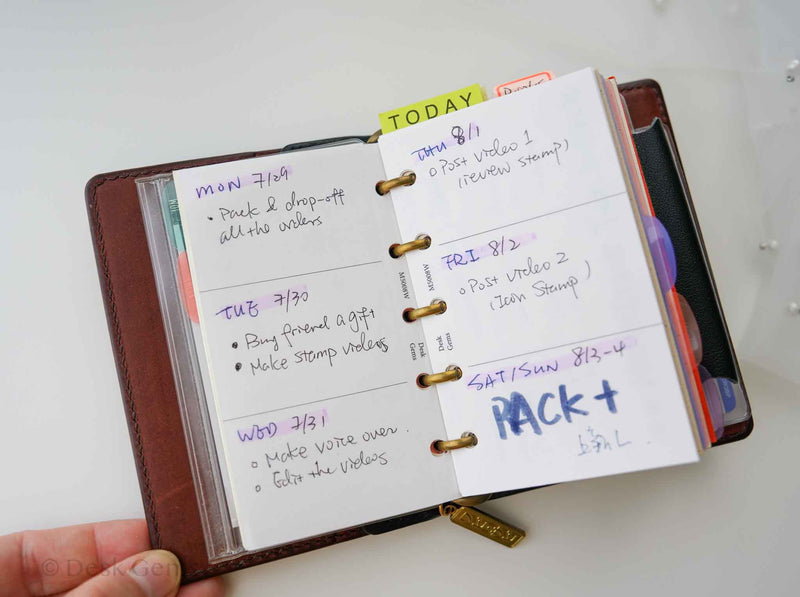 TODAY
MON 7/29
• Pack & drop-off
all the orders
TUE 7/30
• Buy friend a gift
• Make stamp videos
WED 7/31
o Make voice over.
o Edit the videos
M5008W
Desk
Gems
THU 8/1
o Post video 1
(review stamp)
FRI 8/2
o Post video 2
(Icon Stamp)
SAT/SUN 8/3-4
PACK +
M5008W
Desk
Gems
© Desk Gems